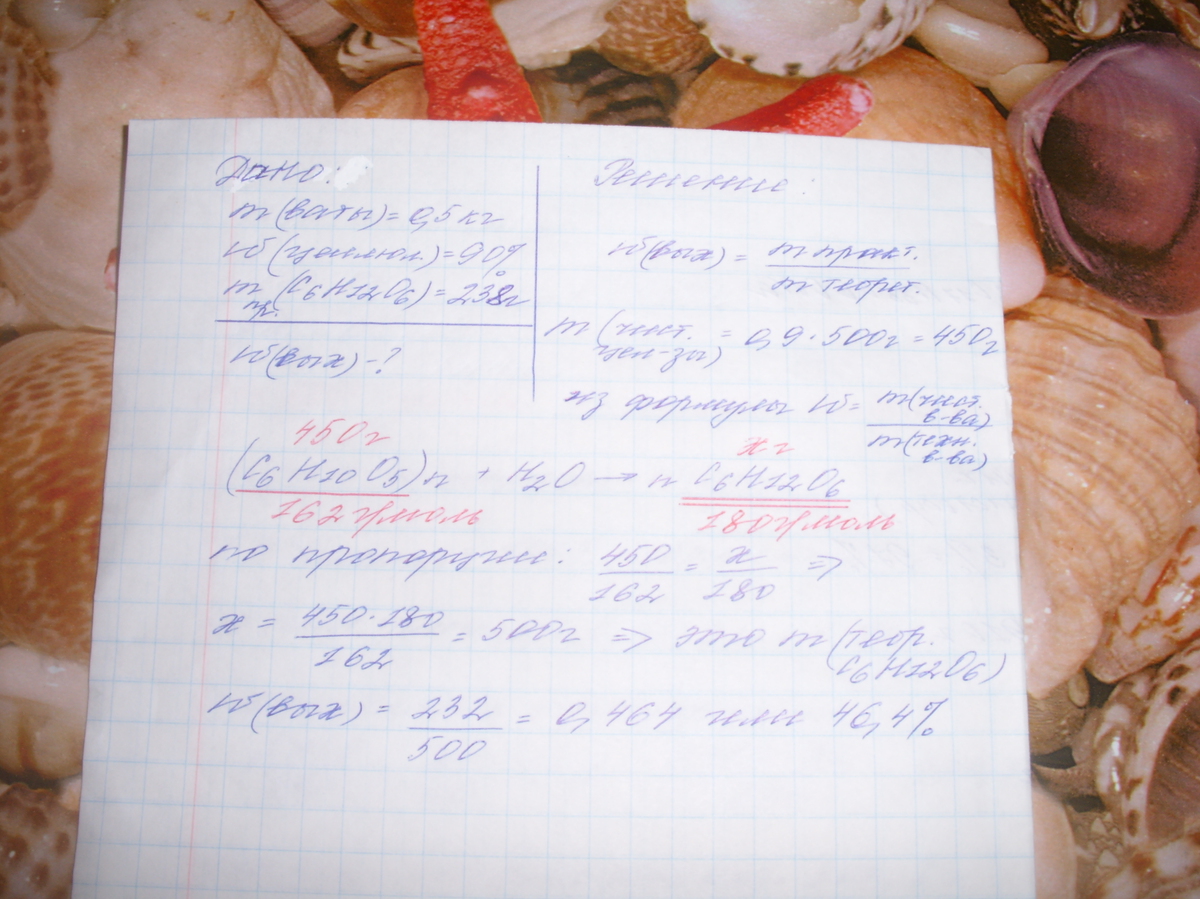 Дано:
m(ваты) = 0,5 кг
w(целлюл.) = 90%
m пр. (C6H12O6) = 238г
w(вых) - ?
Решение:
w(вых) = m практ. / m теорет.
m (чист. цел-зы) = 0,9 · 500г = 450г
из формулы w = m(чист. в-ва) / m(техн. в-ва)
450г x г
(C6H10O5)n + H2O → n C6H12O6
162 г/моль 180 г/моль
по пропорции: 450/162 = x/180 ⇒
x = 450·180/162 = 500г ⇒ это m(теор. C6H12O6)
w(вых) = 232/500 = 0,464 или 46,4%